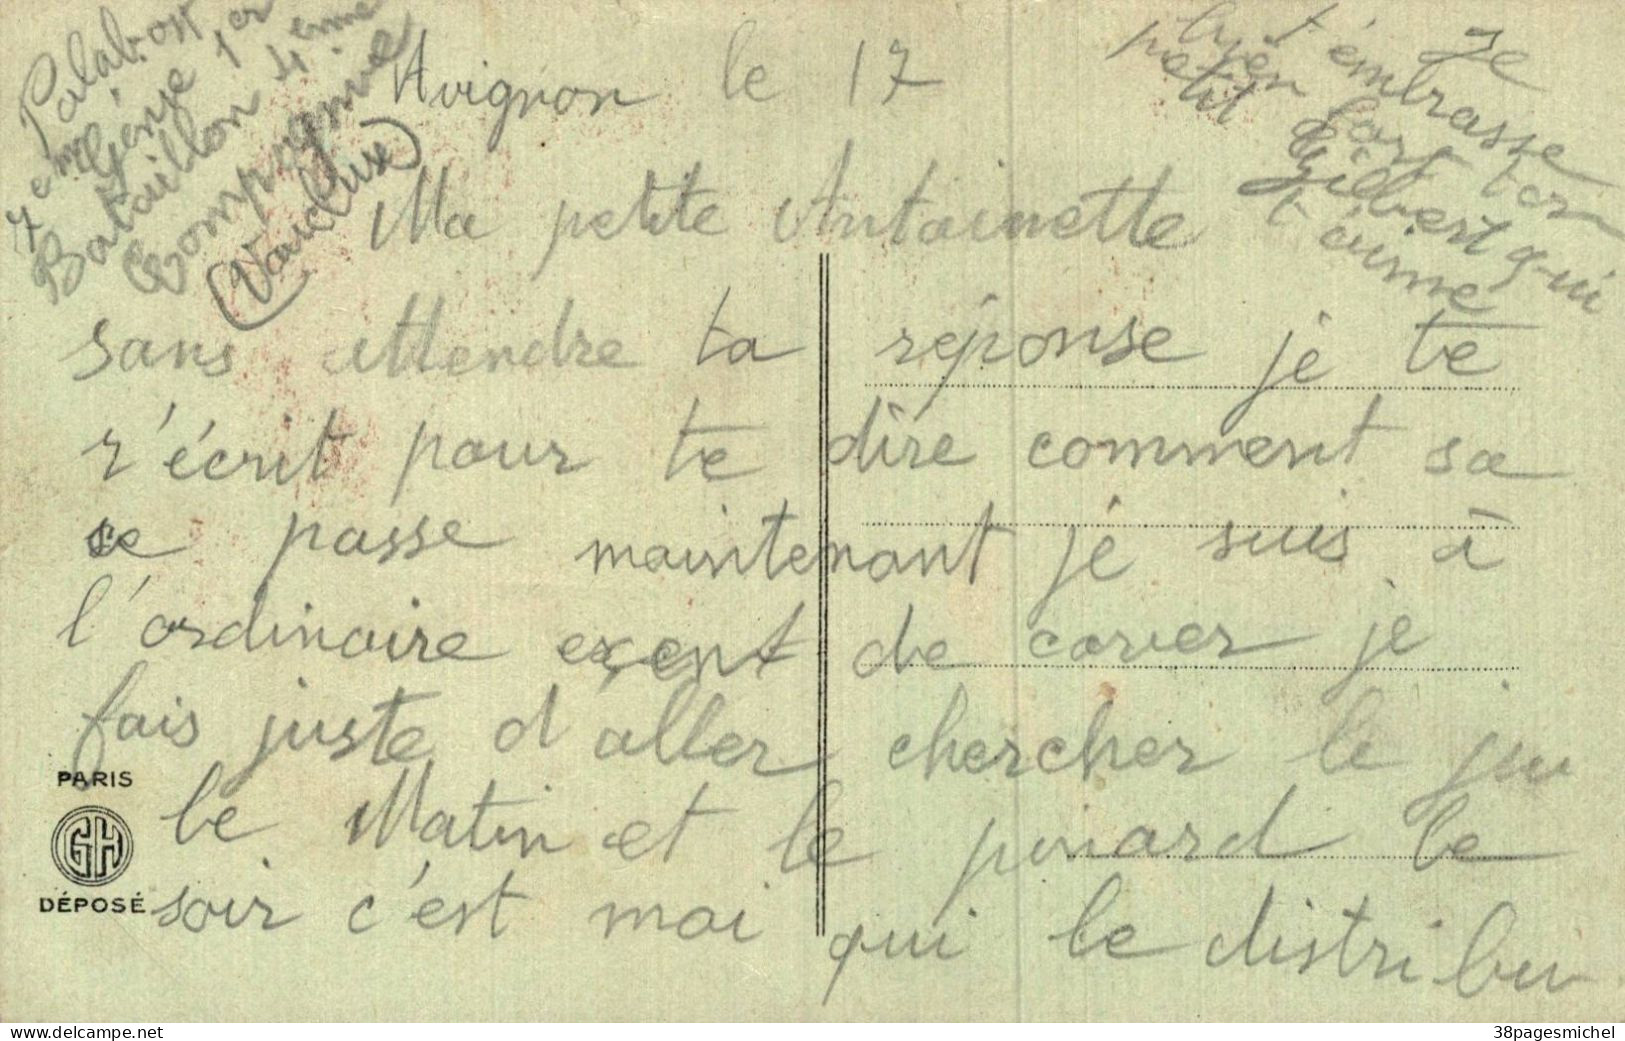 Palabost
7eme Génie 1er
Bataillon 4ème
Compagnie
(Vaucluse)
Avignon le 17
Je
t'embrasse
bien fort ton
petit Gilbert qui
t'aime
Ma petite Antoinette
sans attendre ta réponse je te
r'écrit pour te dire comment sa
se passe maintenant je suis à
l'ordinaire exent de corver je
fais juste d'aller chercher le jui
le Matin et le pinard le
soir c'est moi qui le distribu
PARIS
GH
DÉPOSÉ
www.delcampe.net
38pagesmichel